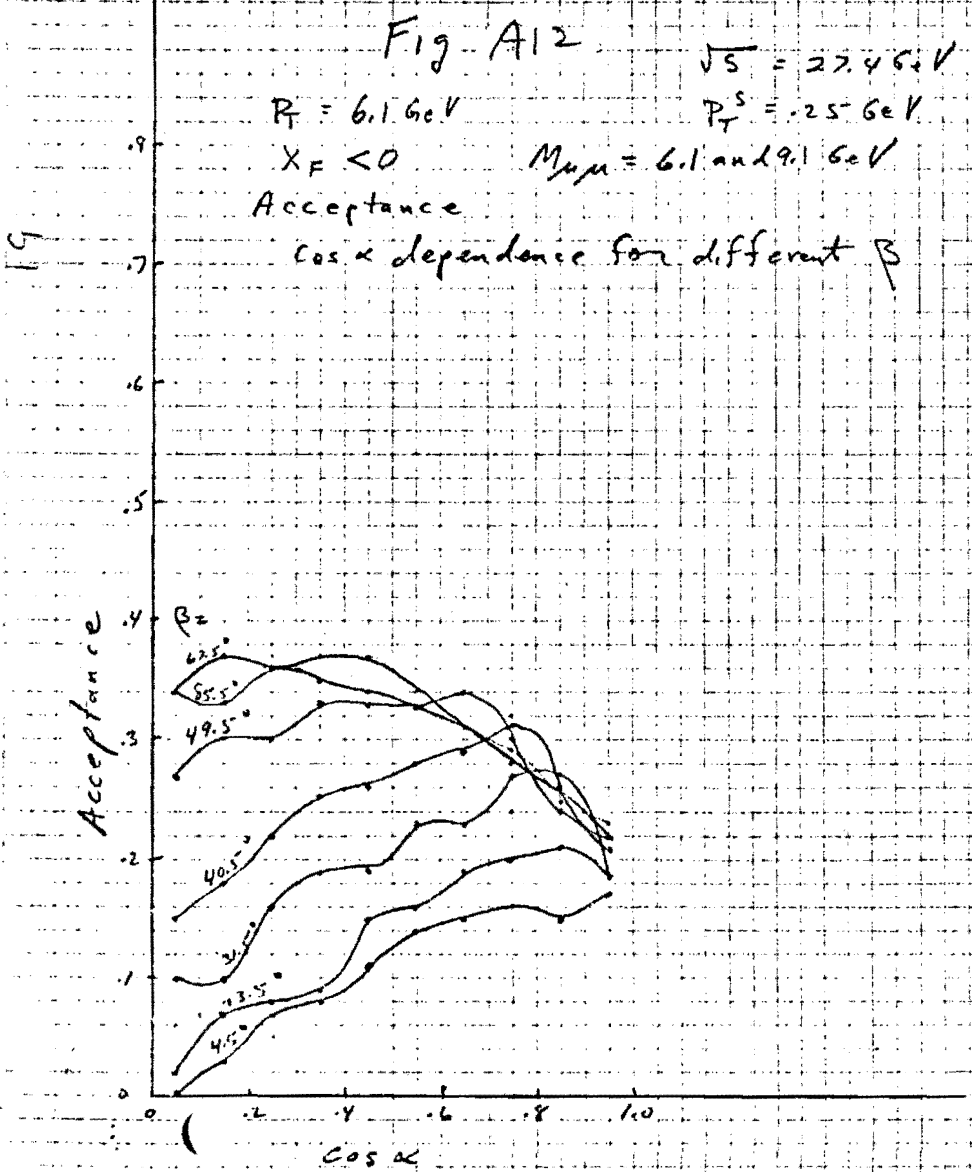 Fig A12
√S = 27.4 GeV
P_T = 6.1 GeV
P_T^S = .25 GeV
X_F < 0
M_μμ = 6.1 and 9.1 GeV
Acceptance
cos α dependence for different β
.9
.7
.6
.5
.4
.3
.2
.1
0
Acceptance
β=
62.5°
55.5°
49.5°
40.5°
31.5°
13.5°
4.5°
0 .2 .4 .6 .8 1.0
cos α